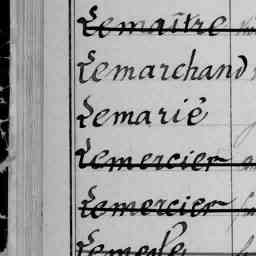 Lemaitre
Lemarchand
Lemarié
Lemercier
Lemercier